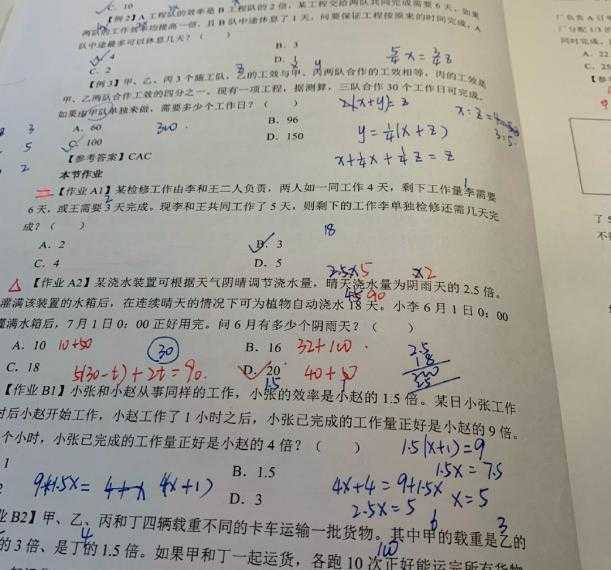 C. 10
【例2】A工程队的效率是B工程队的2倍，某工程交给两队共同完成需要6天。如果
两队的工作效率均提高一倍，且B队中途休息了1天，问要保证工程按原来的时间完成，A
队中途最多可以休息几天？（ ）
A. 4
B. 3
C. 2
D. 1
【例3】甲、乙、丙3个施工队，乙的工效与甲、丙两队合作的工效相等，丙的工效是
甲、乙两队合作工效的四分之一。现有一项工程，据测算，三队合作30个工作日可完成。
如果由甲队单独来做，需要多少个工作日？（ ）
2(x+y)=z
A. 60
300
B. 96
y=¼(x+z)
C. 100
D. 150
x+¼x+¼z=z
【参考答案】CAC
本节作业
【作业A1】某检修工作由李和王二人负责，两人如一同工作4天，剩下工作量李需要
6天，或王需要3天完成。现李和王共同工作了5天，则剩下的工作李单独检修还需几天完
成？（ ）
18
A. 2
B. 3
C. 4
D. 5
2.5x5
x2
【作业A2】某浇水装置可根据天气阴晴调节浇水量，晴天浇水量为阴雨天的2.5倍。
灌满该装置的水箱后，在连续晴天的情况下可为植物自动浇水18天。小李6月1日0：00
90
灌满水箱后，7月1日0：00正好用完。问6月有多少个阴雨天？（ ）
A. 10
10+50
30
B. 16
32+100
2.5
18
C. 18
5(30-t)+2t=90
D. 20
40+50
15
【作业B1】小张和小赵从事同样的工作，小张的效率是小赵的1.5倍。某日小张工作
时后小赵开始工作，小赵工作了1小时之后，小张已完成的工作量正好是小赵的9倍。
个小时，小张已完成的工作量正好是小赵的4倍？（ ）
1.5(x+1)=9
1
B. 1.5
1.5x=7.5
9+1.5x=
4(x+1)
D. 3
4x+4=9+1.5x
2.5x=5
x=5
B2】甲、乙、丙和丁四辆载重不同的卡车运输一批货物。其中甲的载重是乙的
的3倍、是丁的1.5倍。如果甲和丁一起运货，各跑10次正好能运完所有货物